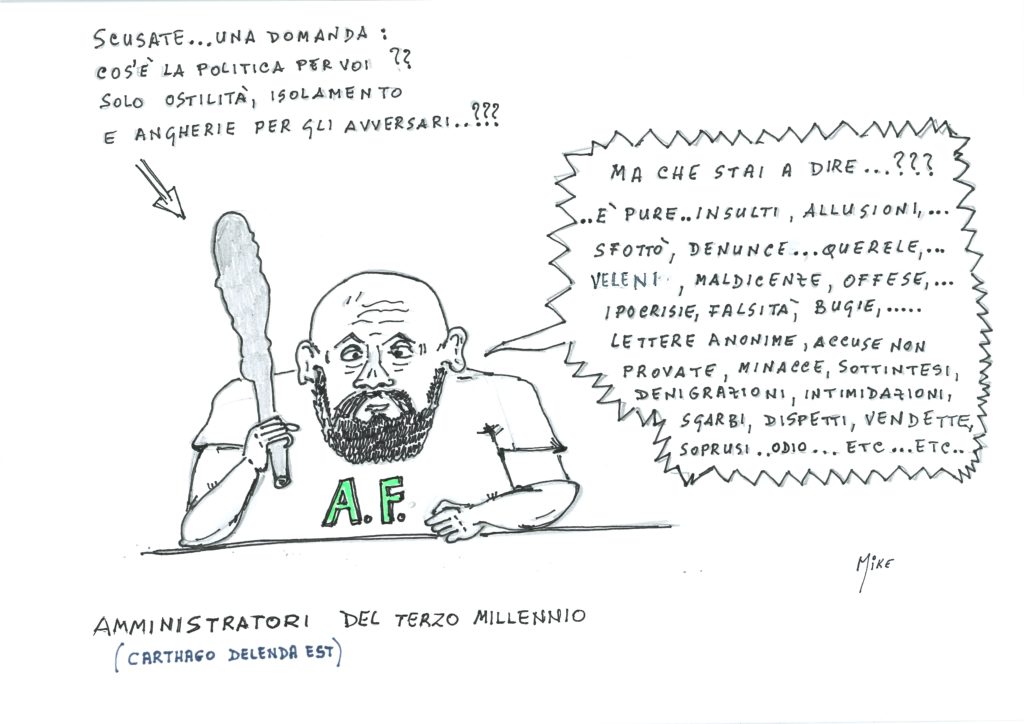 SCUSATE...UNA DOMANDA :
COS'È LA POLITICA PER VOI ??
SOLO OSTILITÀ, ISOLAMENTO
E ANGHERIE PER GLI AVVERSARI..???
MA CHE STAI A DIRE...???
..E' PURE..INSULTI, ALLUSIONI,...
SFOTTÒ, DENUNCE...QUERELE,...
VELENI, MALDICENZE, OFFESE,...
IPOCRISIE, FALSITÀ, BUGIE,.....
LETTERE ANONIME, ACCUSE NON
PROVATE, MINACCE, SOTTINTESI,
DENIGRAZIONI, INTIMIDAZIONI,
SGARBI, DISPETTI, VENDETTE,
SOPRUSI..ODIO... ETC...ETC..
A.F.
MIKE
AMMINISTRATORI DEL TERZO MILLENNIO
(CARTHAGO DELENDA EST)